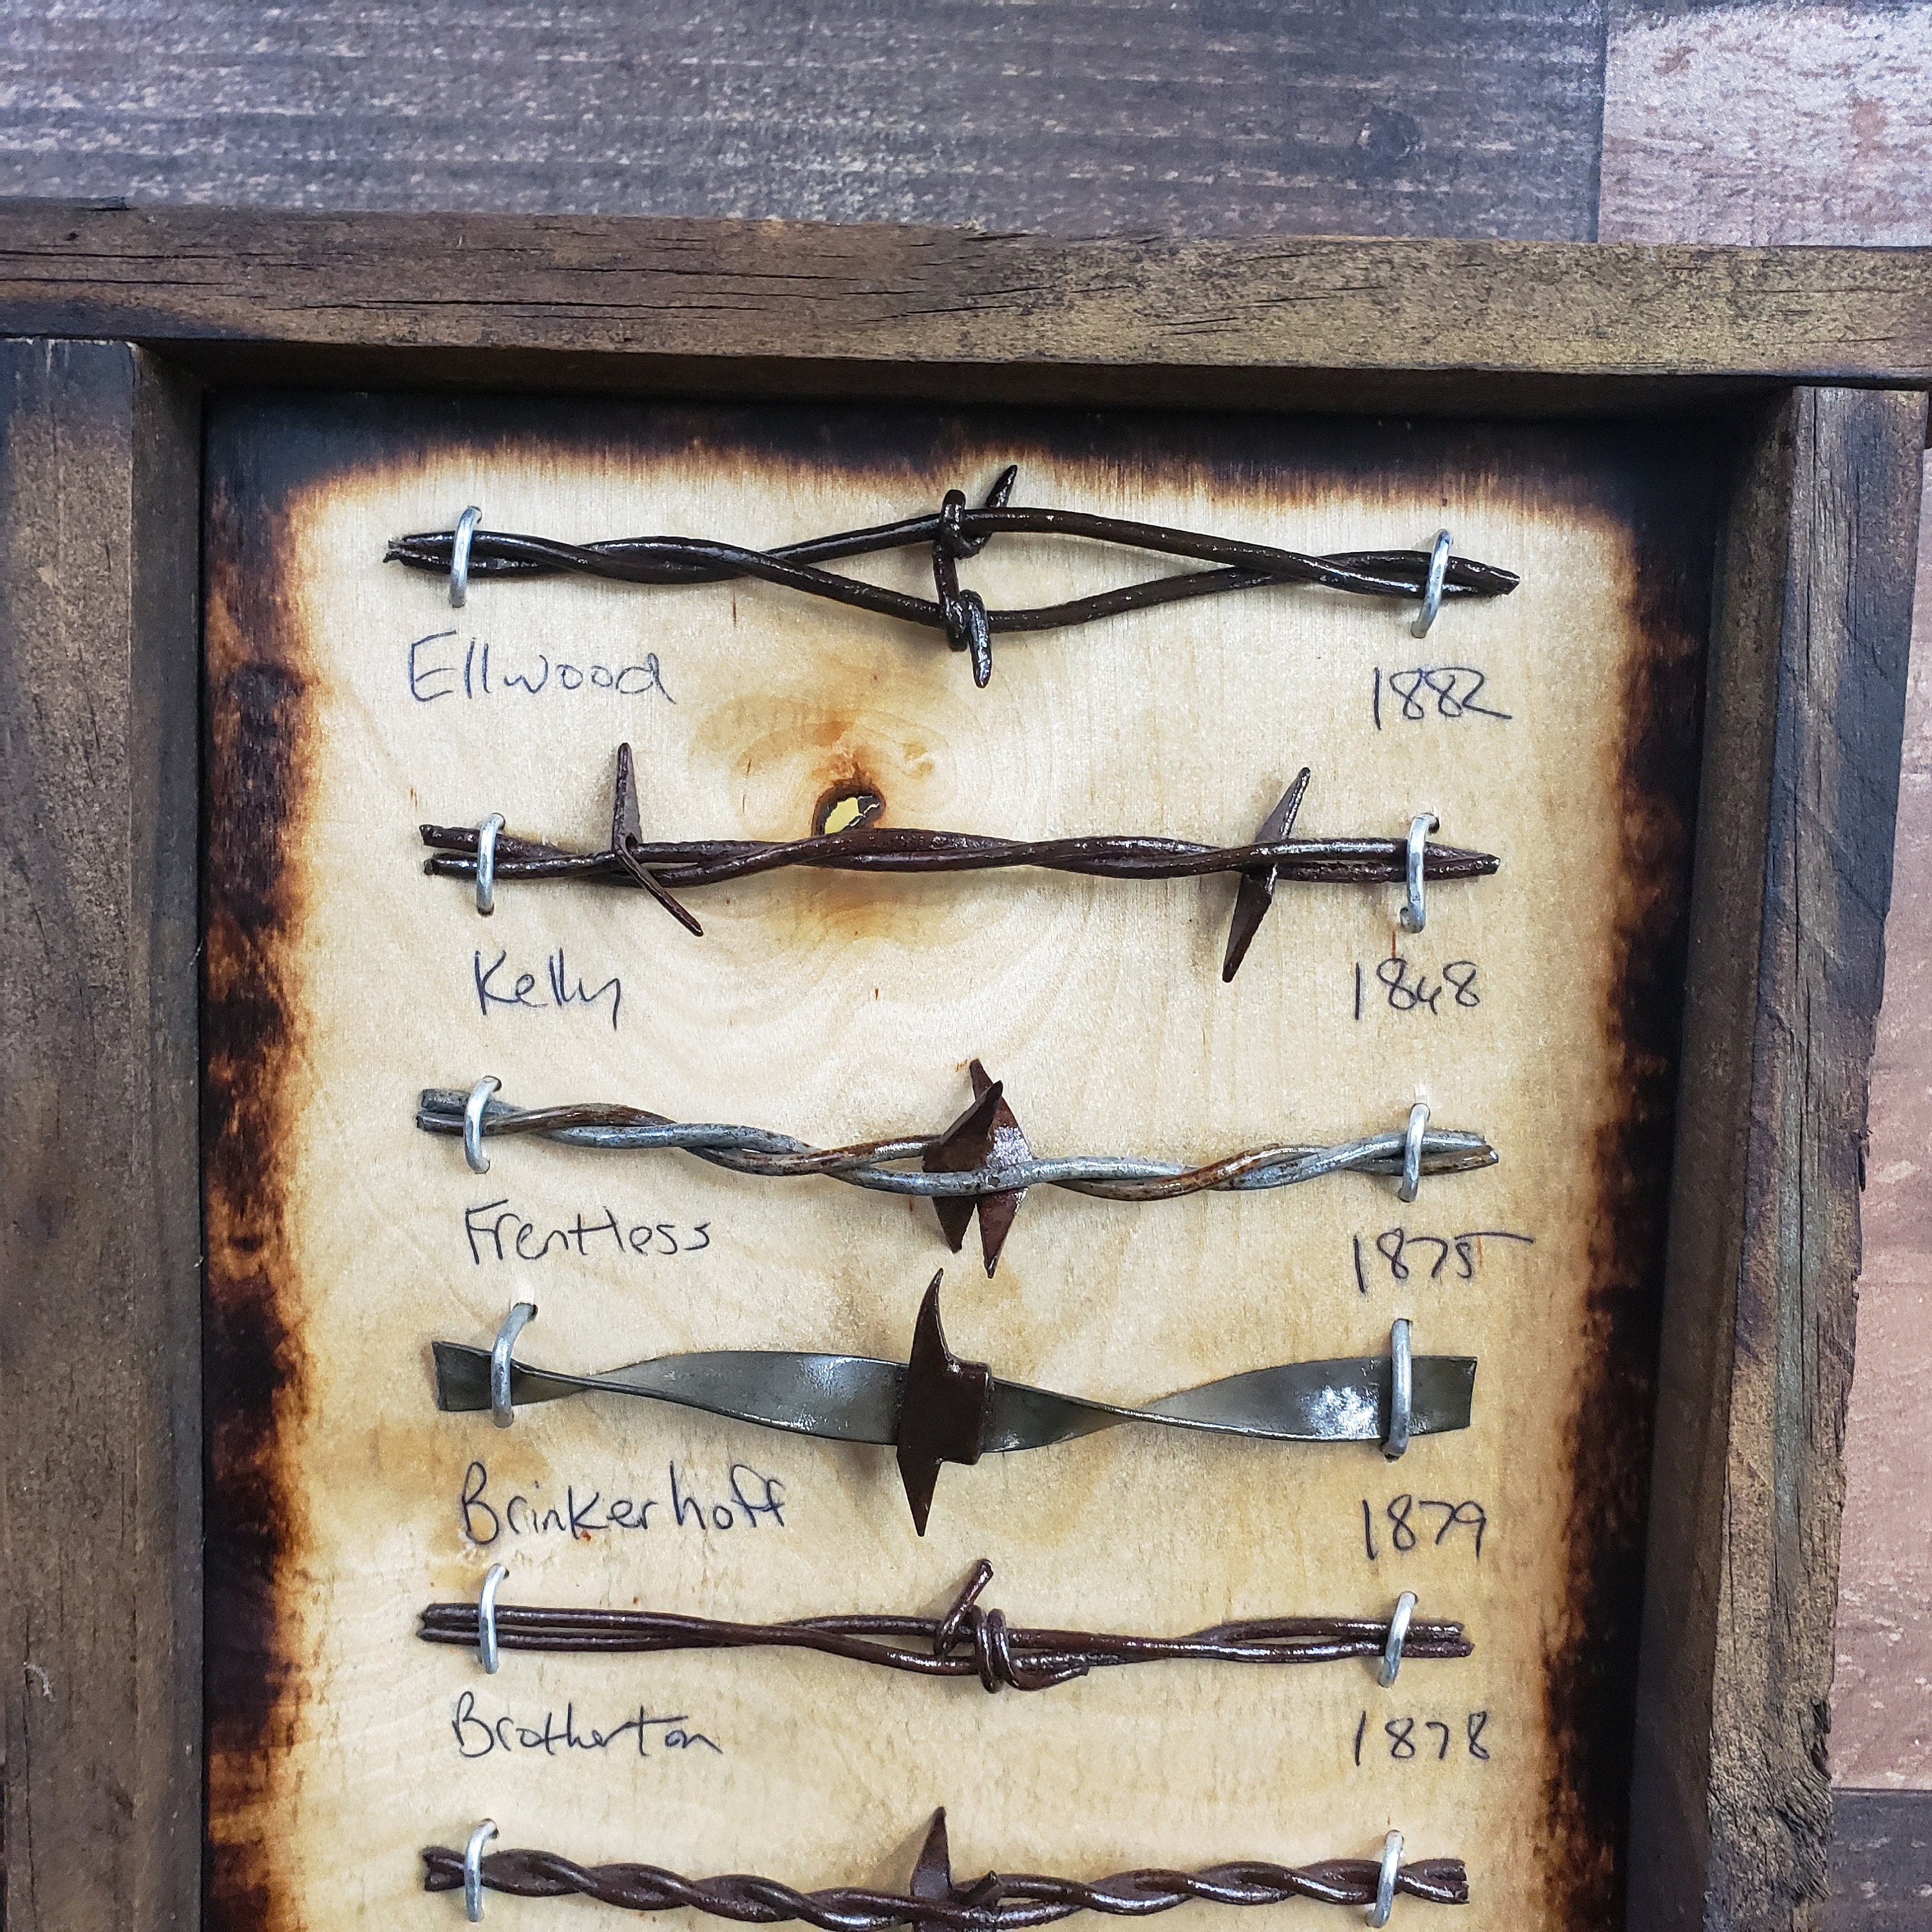 Ellwood 1882
Kelly 1868
Frentless 1875
Brinkerhoff 1879
Brotherton 1878